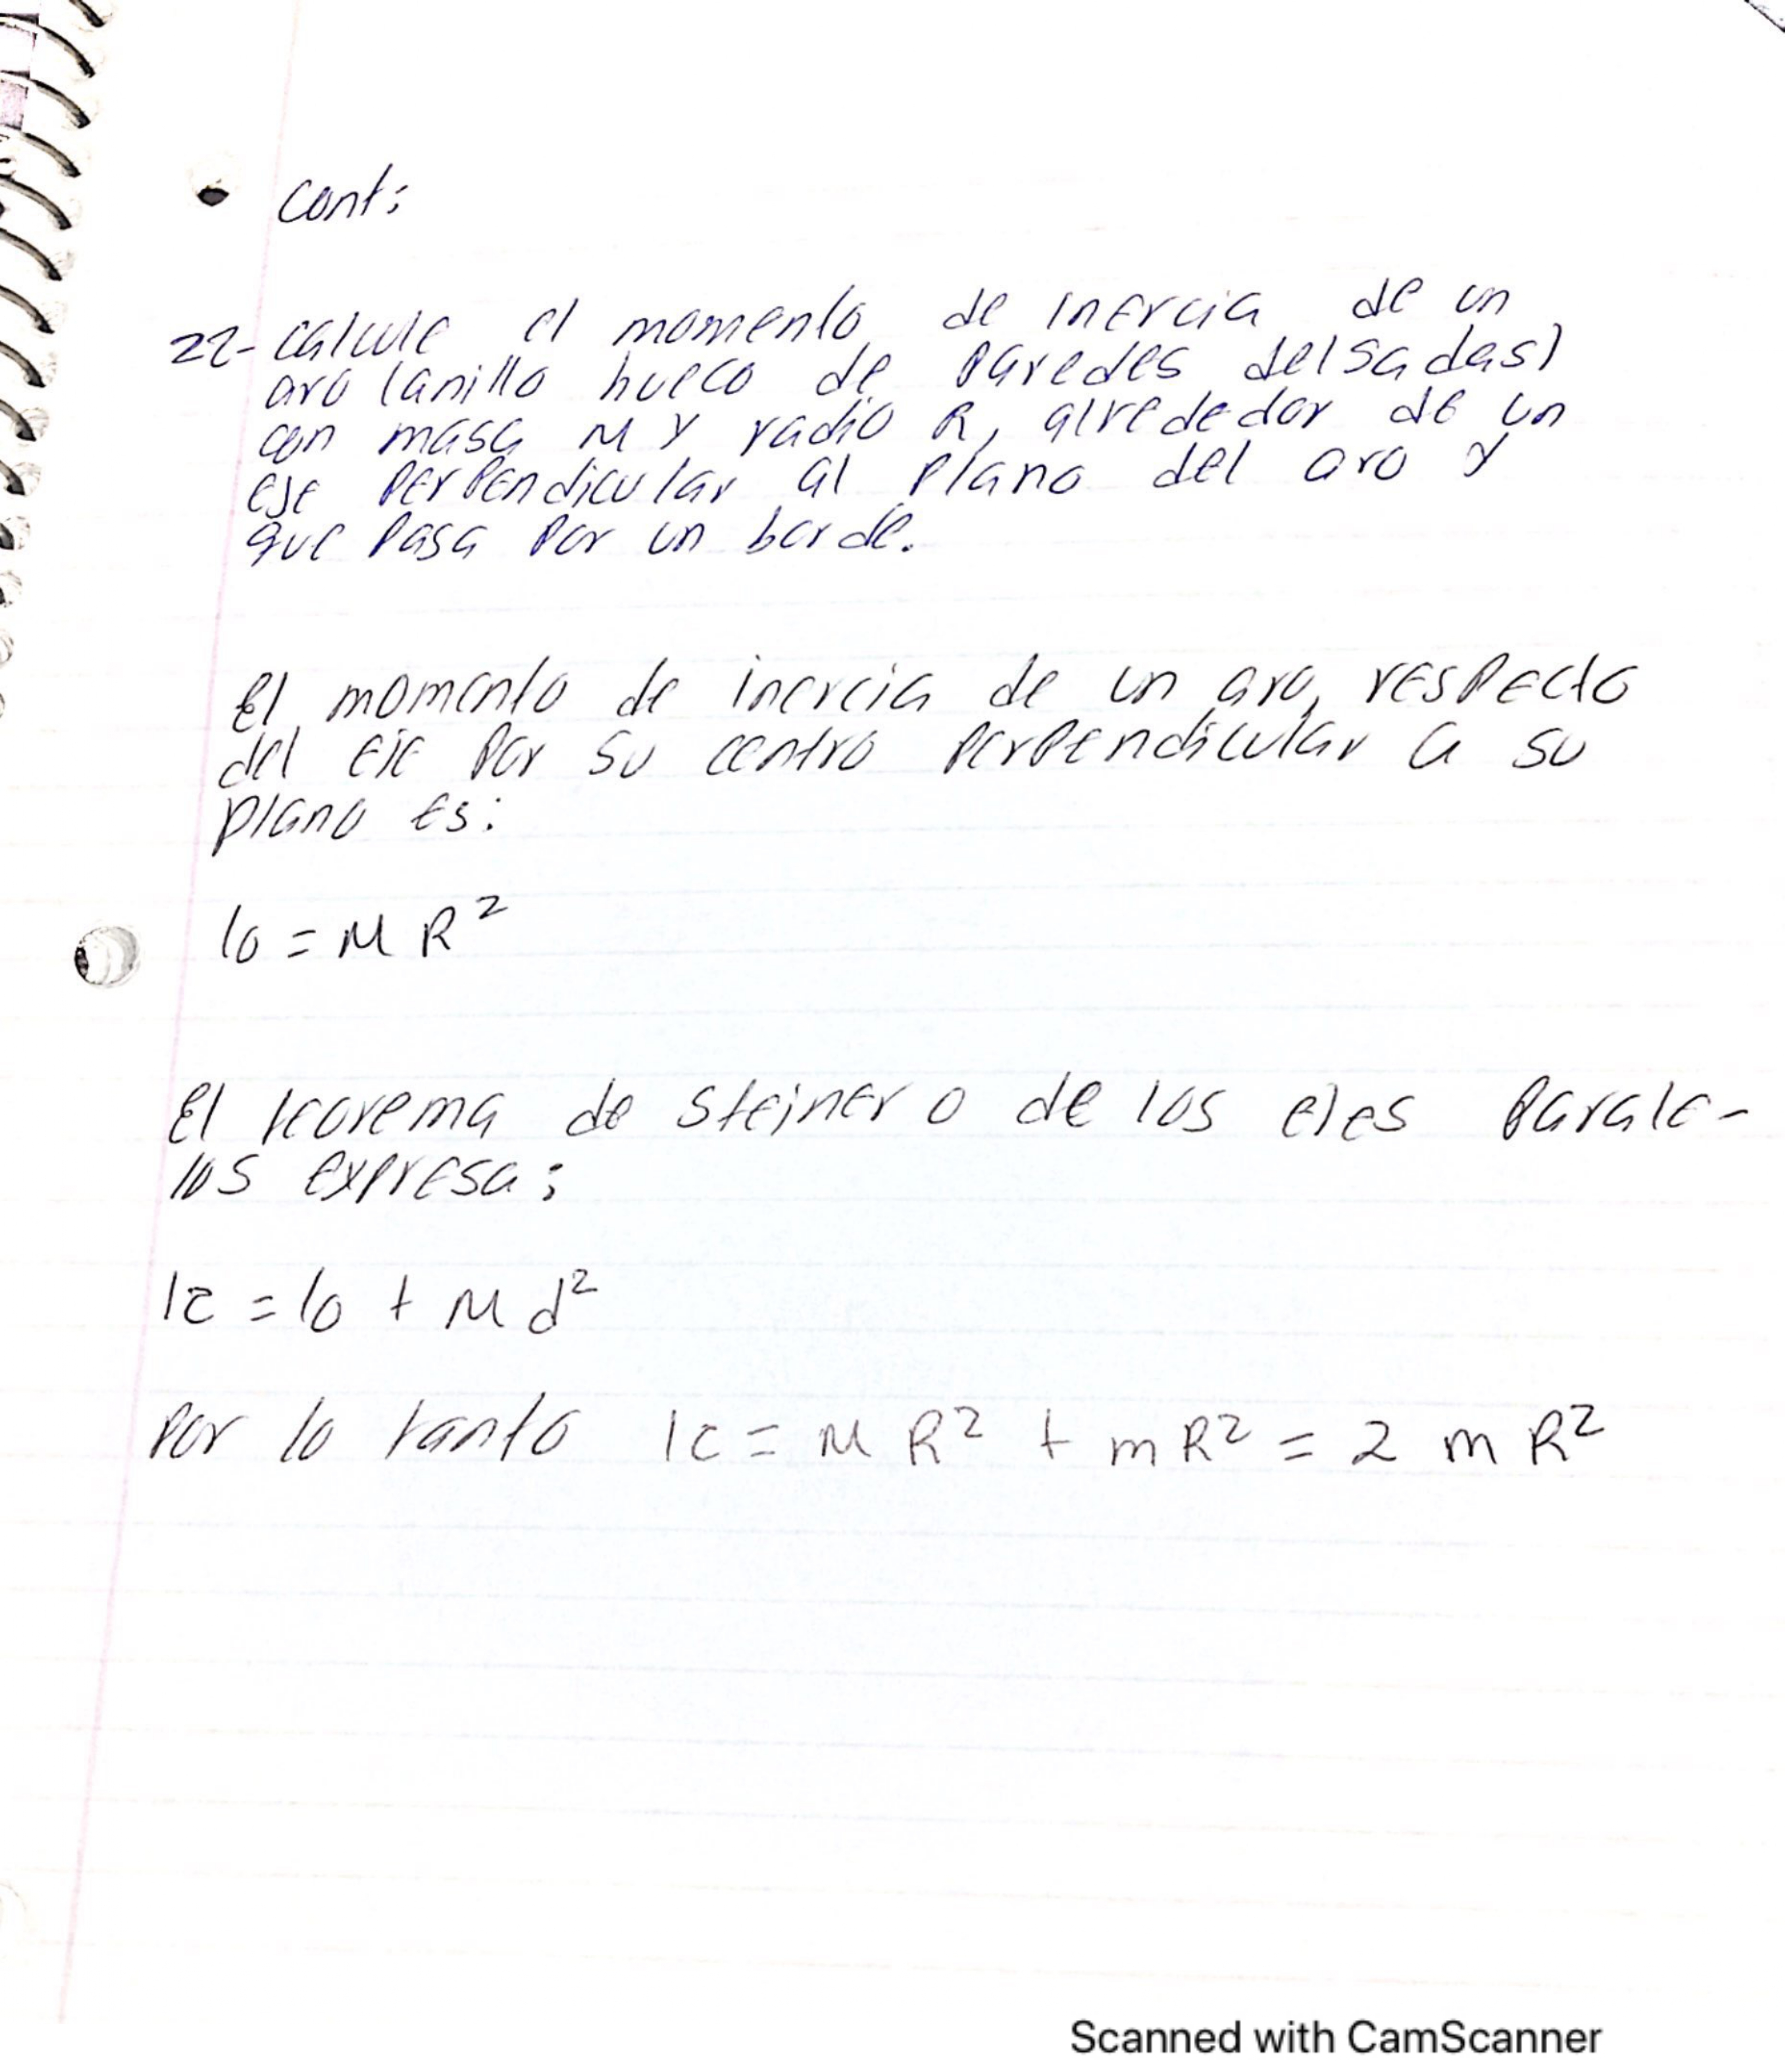 Cont:
22- calcule el momento de inercia de un
aro (anillo hueco de paredes delgadas)
con masa M y radio R, alrededor de un
eje perpendicular al plano del aro y
que pasa por un borde.
El momento de inercia de un aro, respecto
del eje por su centro perpendicular a su
plano es:
Io = M R²
El teorema de steiner o de los ejes parale-
los expresa:
Ic = Io + M d²
Por lo tanto Ic = M R² + m R² = 2 m R²
Scanned with CamScanner